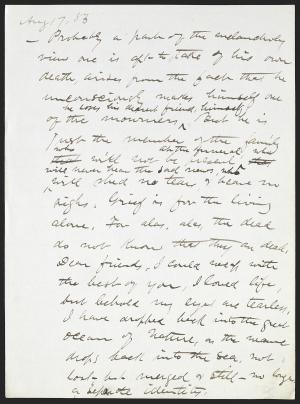 Aug 17. 83
— Probably a part of the melancholy
view one is apt to take of his own
death arises from the fact that he
unconsciously makes himself one
he loses his dearest friend, himself,
of the mourners. But he is
just the member of the family
who at the funeral, who
that will not be present, that
will never hear the sad news, who
will shed no tear or heave no
sigh. Grief is for the living
alone. For alas, alas, the dead
do not know that they are dead.
Dear friends, I could weep with
the best of you, I loved life,
but behold my eyes are tearless,
I have dropped back into the great
ocean of Nature, as the wave
drops back into the sea, not
lost but merged, or still — no longer
a separate identity.